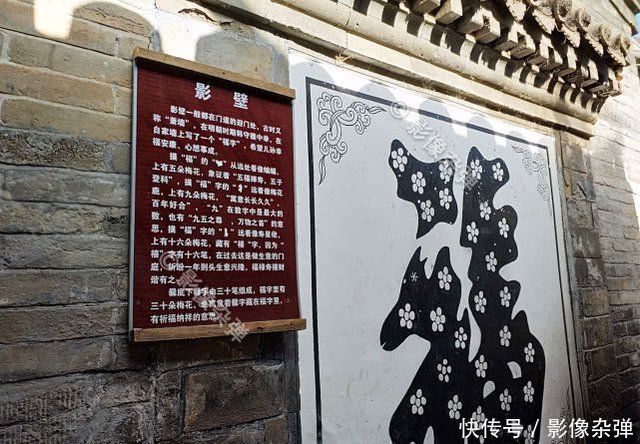 影壁
影壁一般都在门道的迎门处，古时又
称“萧墙”，在明朝时期韩守德中举，在
自家墙上写了一个“福字”，希望儿孙幸
福安康、心想事成。
摸“福”的“ ”从远处看像蝙蝠，
上有五朵梅花，象征着“五福捧寿，五子
登科”，摸“福”字的“ ”远看像梅花
鹿，上有九朵梅花，“寓意长长久久，
百年好合”，“九”在数字中是最大的
数，也有“九五之尊，万物之首”的意
思，摸“福”字的“ ”，远看像寿星佬，
上有十六朵梅花，藏有“禧”字，因为“
禧”字有十六笔，在过去这是做生意的门
庭，祈盼一年到头生意兴隆，福禄寿禧财
诸有之。
整底下 字由三十笔组成，福字里有
三十朵梅花，是寓意着 字藏在福字里，
有祈福纳祥的意思。
©影像杂弹
©影像杂弹
©影像杂弹
快传号 / 影像杂弹